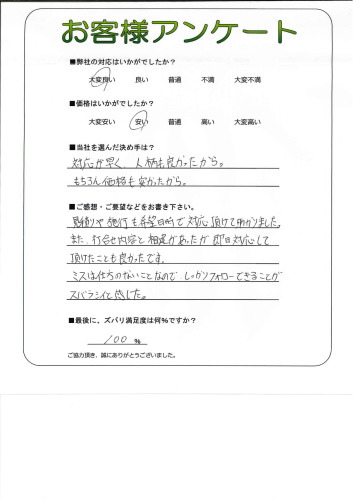 お客様アンケート
■弊社の対応はいかがでしたか？
大変良い 良い 普通 不満 大変不満
■価格はいかがでしたか？
大変安い 安い 普通 高い 大変高い
■当社を選んだ決め手は？
対応が早く、人柄も良かったから。
もちろん価格も安かったから。
■ご感想・ご要望などをお書き下さい。
見積りや施行も希望日時で対応頂けて助かりました。
また、打合せ内容と相違があったが即日対応して
頂けたことも良かったです。
ミスは仕方のないことなので しっかりフォローできることが
スバラシイと感じた。
■最後に、ズバリ満足度は何%ですか？
100 %
ご協力頂き、誠にありがとうございました。